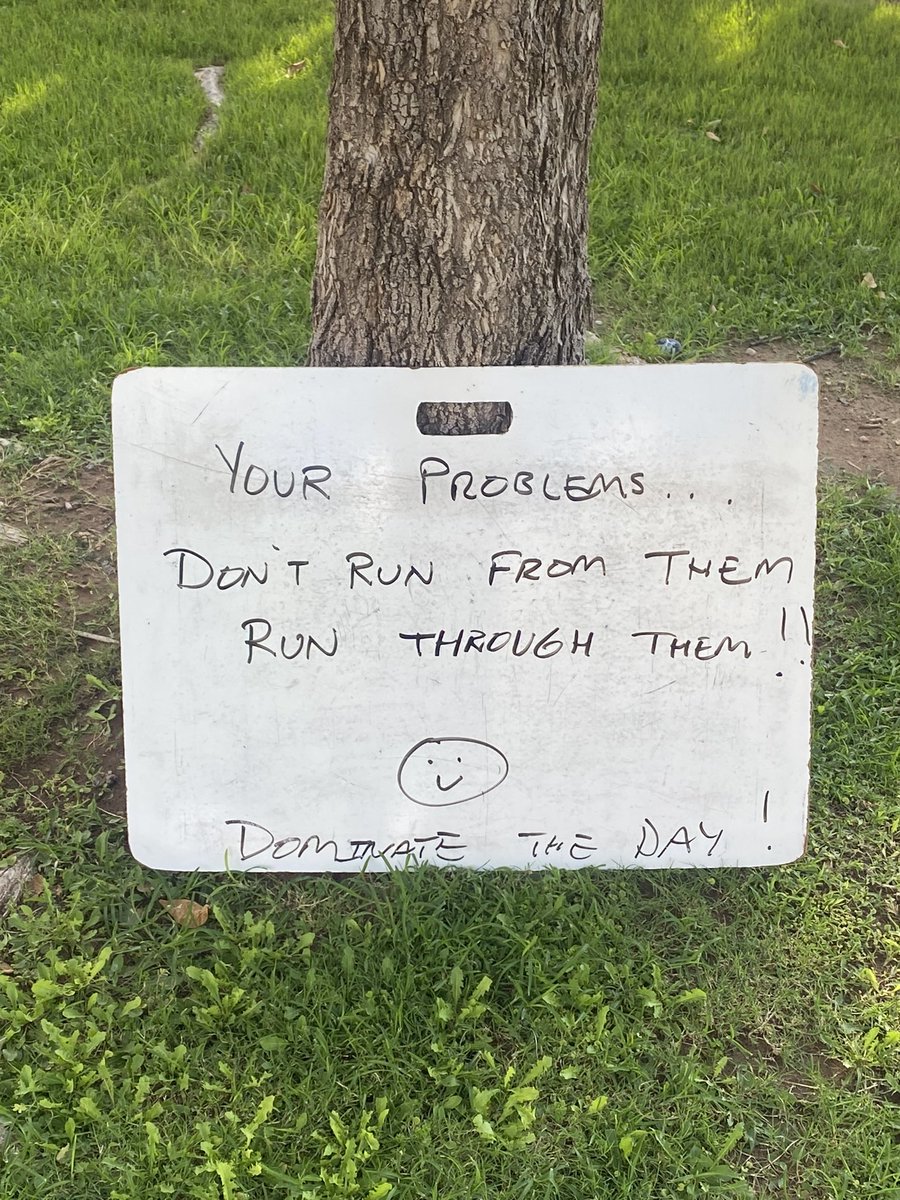 YOUR PROBLEMS....
DON'T RUN FROM THEM
RUN THROUGH THEM!!
DOMINATE THE DAY!